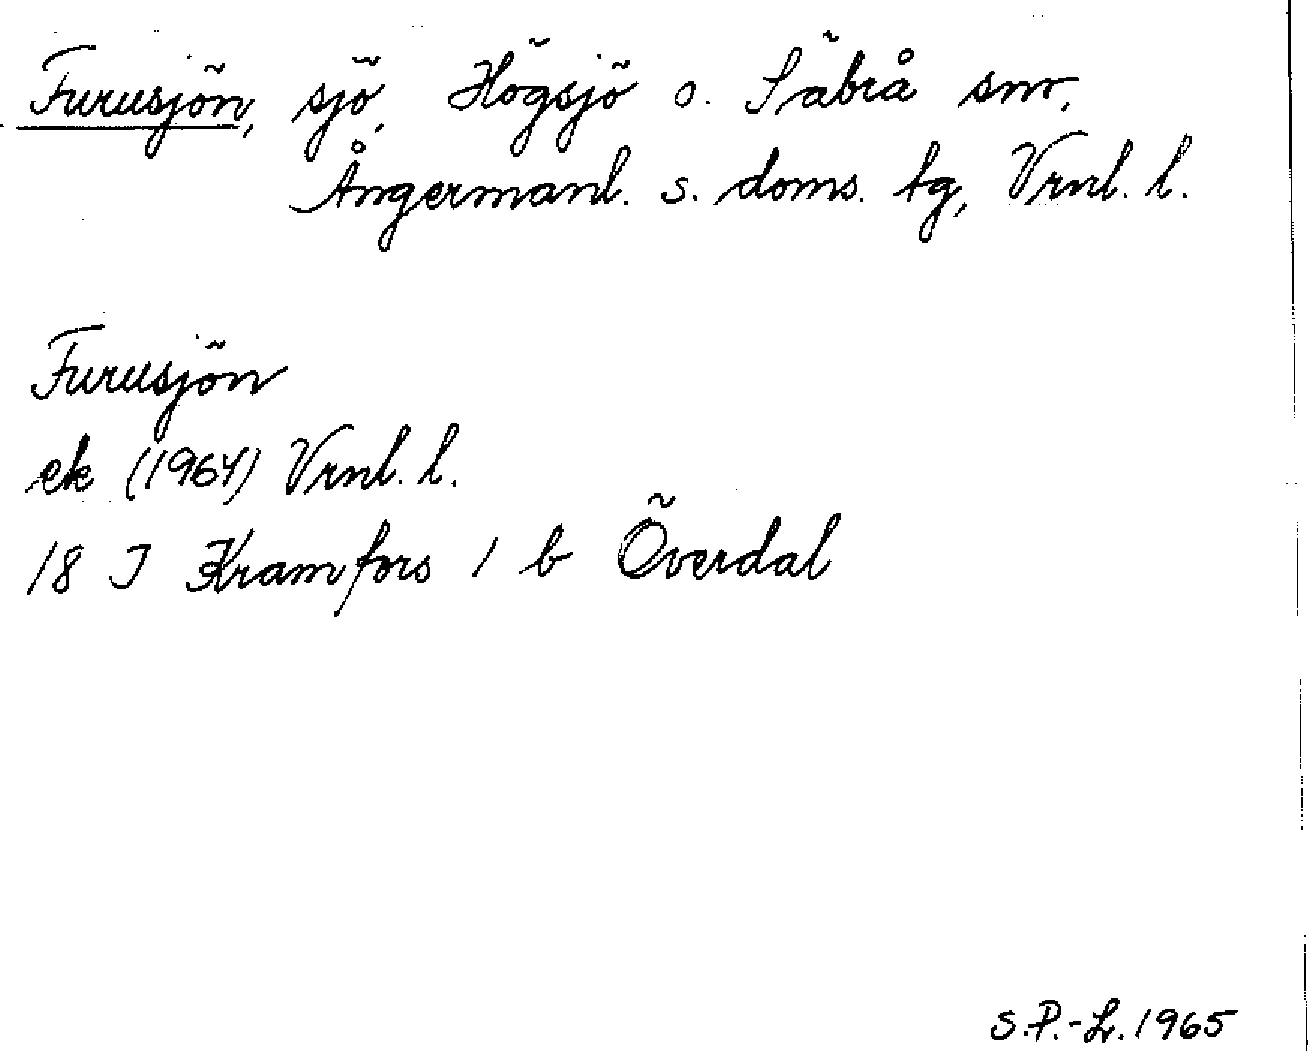 Furusjön, sjö, Högsjö o. Säbrå snr,
Ångermanl. s. doms. tg, Vrnl. l.
Furusjön
ek (1964) Vrnl. l.
18 J Kramfors 1 b Överdal
S.P.-L. 1965